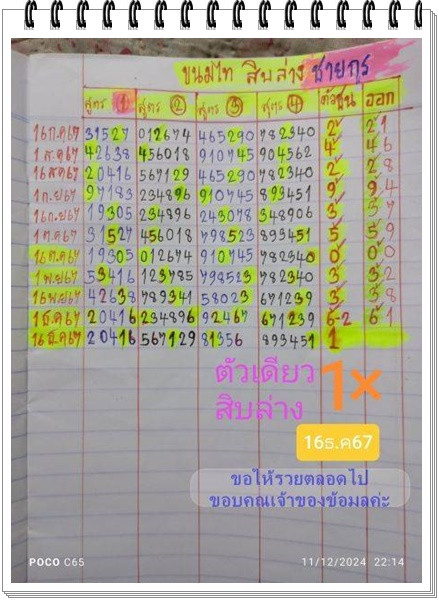 ขนมไท สิบล่าง ชายกร
สูตร 1 สูตร 2 สูตร 3 สูตร 4 ตัวชน ออก
16ก.ค67 31527 012674 465290 782340 2 21
1ส.ค67 42638 456018 910745 904562 4 46
16สค67 20416 567129 465290 782340 2 28
1ก.ย67 97183 234896 910745 893451 9 94
16ก.ย67 19305 234896 243078 348906 3 57
1ต.ค67 31527 456018 798523 893451 5 59
16ต.ค67 19305 012674 910745 782340 0 00
1พ.ย67 53416 123785 798523 782340 3 32
16พย67 42638 789341 58023 671239 3 38
1ธ.ค67 20416 234896 92467 671239 6-2 61
16ธ.ค67 20416 567129 81356 893451 1
ตัวเดียว 1×
สิบล่าง
16ธ.ค67
ขอให้รวยตลอดไป
ขอบคุณเจ้าของข้อมูลค่ะ
POCO C65 11/12/2024 22:14